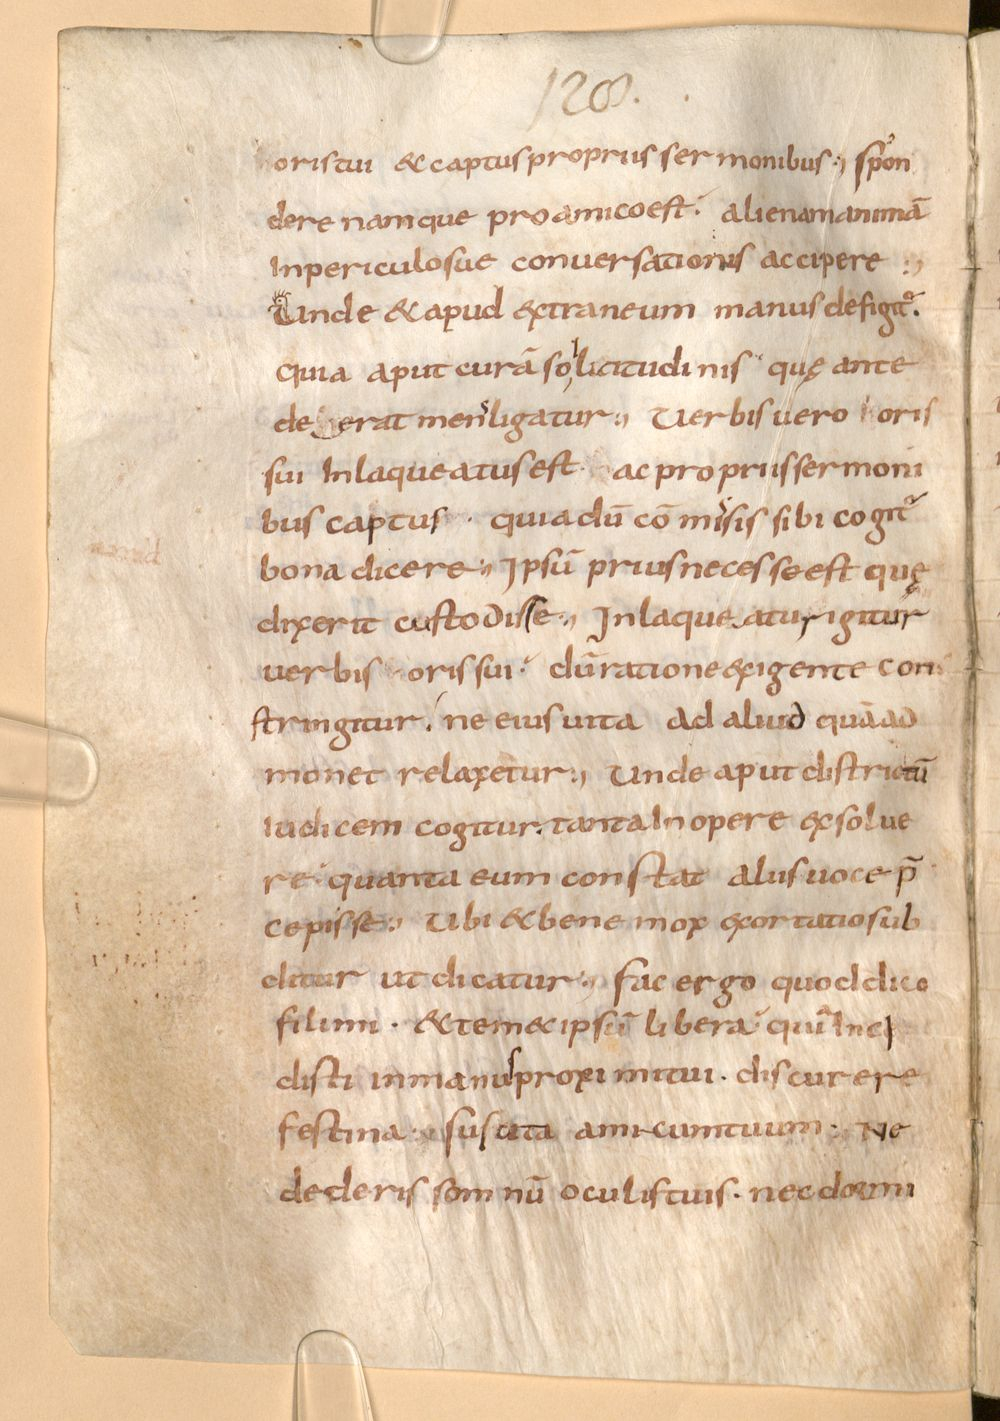 128.
oris tui & captus propriis sermonibus:, spon
dere namque pro amico est. alienam animā
In periculo suae conversationis accipere:,
Unde & apud extraneum manus defigit᷑.
quia aput curā sollicitudinis quę ante
deerat mens ligatur:, Verbis vero oris
sui Inlaqueatus est. ac propriis sermoni
bus captus. quia dū cōmissis sibi cogit᷑
bona dicere:, Ipsū prius necesse est quę
dixerit custodisse:, Inlaqueatur igitur
verbis oris sui. dū ratione exigente con
stringitur. ne eius vita ad aliud quā ad
monet relaxetur:, Unde aput districtū
iudicem cogitur. tanta In opere exsolve
re quanta eum constat aliis voce p̄
cepisse:, Ubi & bene mox exortatio sub
ditur ut dicatur:, fac ergo quod dico
fili mi. & temetipsū libera quia Inci
disti in manus proximi tui. discurere
festina. suscita amicum tuum. Ne
dederis somnū oculis tuis. nec dormi